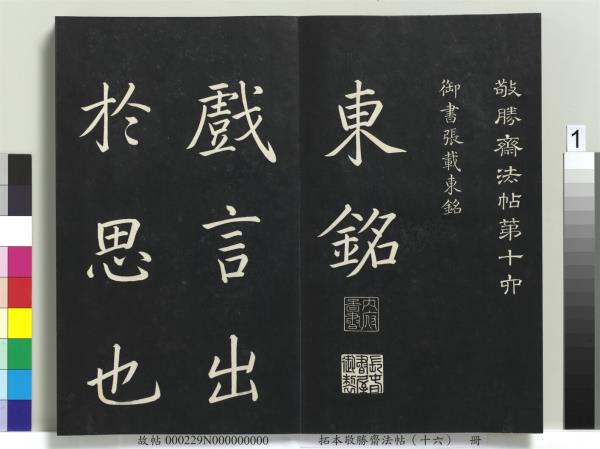 敬勝齋法帖第十六
御書張載東銘
東銘
戲言出
於思也
1
故帖 000229N000000000 拓本敬勝齋法帖（十六） 冊